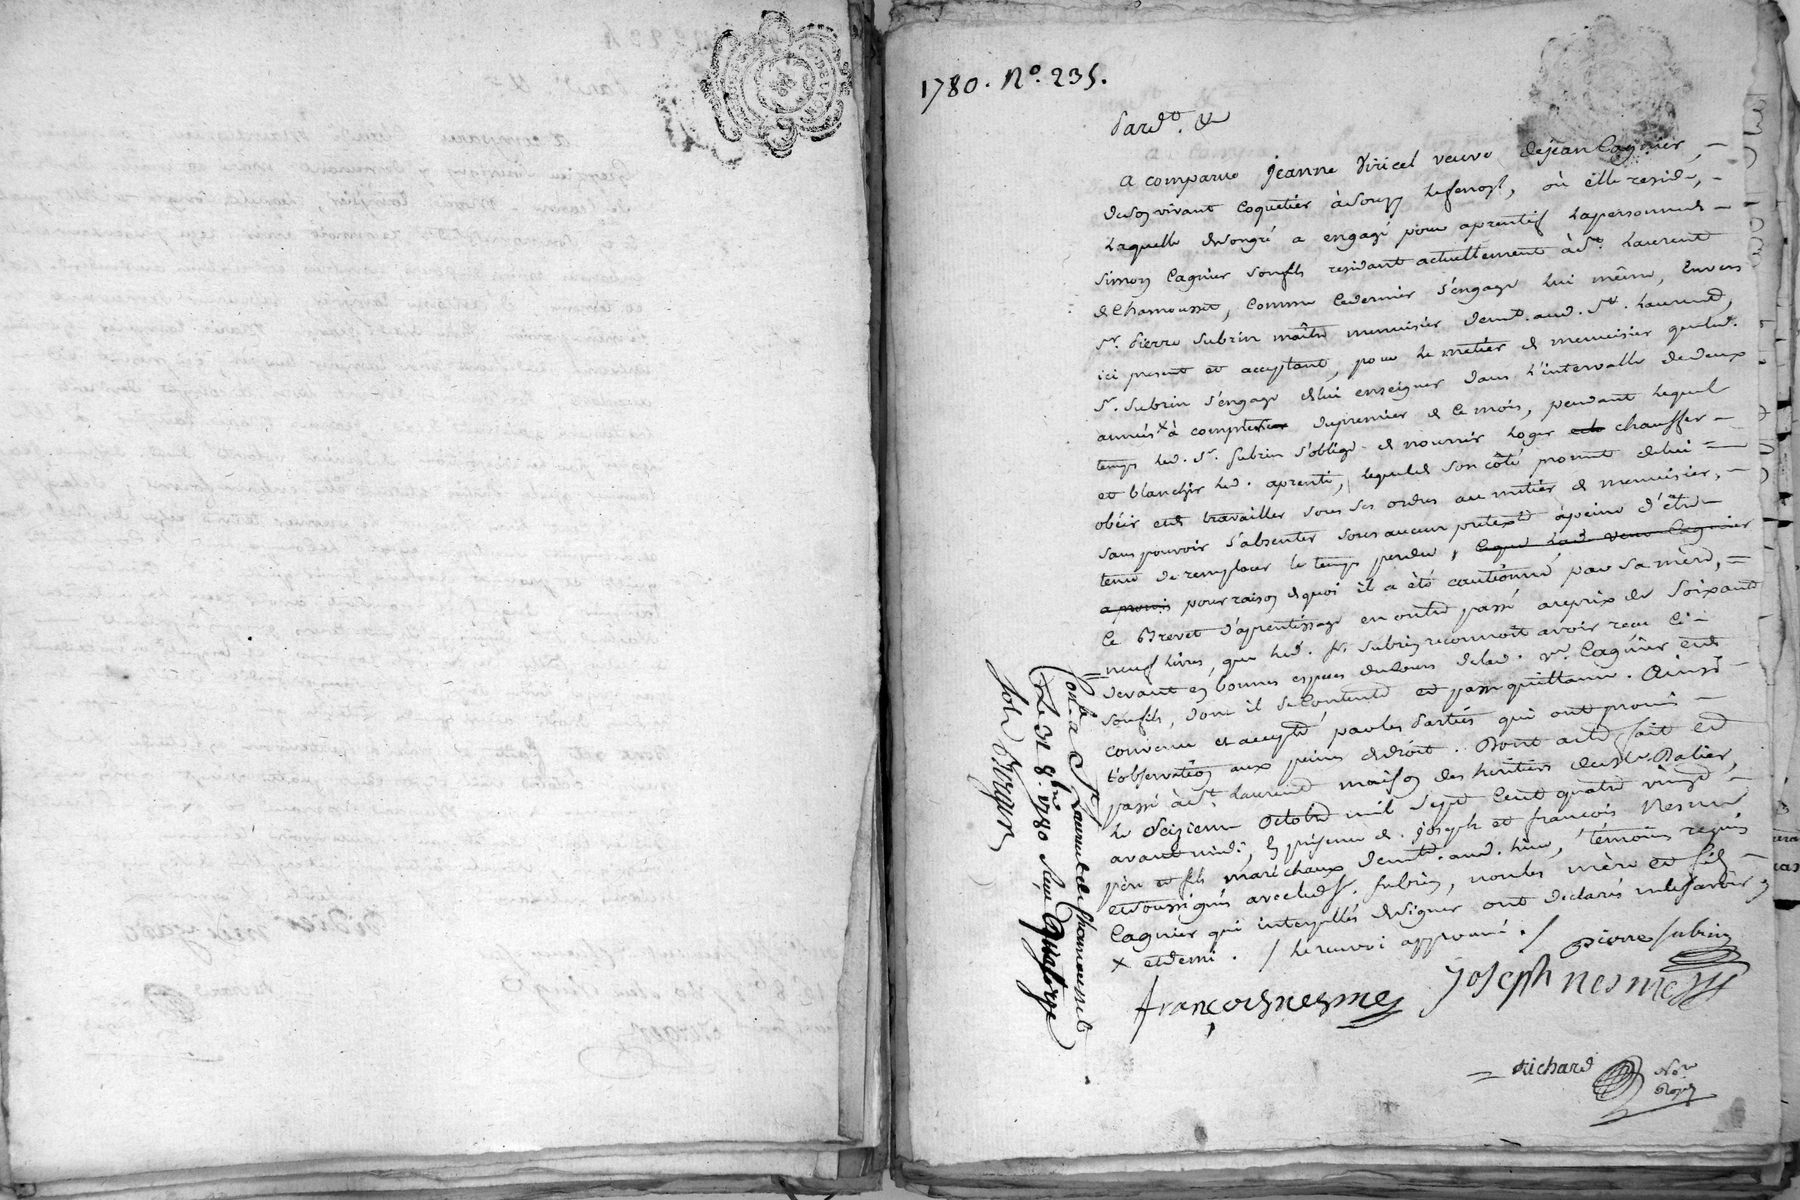 1780. N.º 235.
Pard.t &
a comparue Jeanne Viricel veuve de jean Cagnier,
de son vivant Coquetier à Souzy Lo où elle reside,
Laquelle de son gré a engagé pour aprentif la personne de
Simon Cagnier Son fils residant actuellement à St. Laurent
de Chamousset, Comme Ce dernier s'engage lui même, Envers
Sr. Pierre Subrin maître menuisier demt. aud. St. Laurent,
ici present et acceptant, pour le métier de menuisier que led.
Sr. Subrin s'engage de lui enseigner dans l'intervalle de deux
années x à compter du premier de Ce mois, pendant lequel
temps led. Sr. Subrin s'oblige de nourrir loger chauffer
et blanchir led. aprenti, lequel de son côté promet de lui
obéir et de travailler sous ses ordres au métier de menuisier,
sans pouvoir s'absenter sous aucun pretexte à peine d'être
tenu de remplacer le temps perdu, lad. veuve Cagnier
a promis pour raison de quoi il a été cautionné par sa mère,
Ce Brevet d'aprentissage en outre passé au prix de Soixante
neuf livres, que led. Sr. Subrin reconnoit avoir recu Ci
devant en bonnes especes du cours de lad. ve. Cagnier et de
son fils, dont il se Contente et passe quittance. Ainsi
convenu et accepté par les Parties qui ont promis
l'observation aux peines de droit. Dont acte fait et
passé à St. Laurent maison des héritiers de Sr. Balier,
le Seizieme Octobre mil sept Cent quatre vingt,
avant midi, En présence de joseph et françois Nesme
père et fils maréchaux demt. aud. lieu, témoins requis
et soussignés avec led. Sr. Subrin, non les mère et fils
Cagnier qui interpellés de signer ont declarés ne le savoir
x et demi. / Le renvoi approuvé. /
pierre subrin
françois nesme joseph nesme
richard Nore
Royal
Conlé a St. Laurent de Chamousset
Le 31 8bre. 1780 Reçu quatorze
sols Forgeron